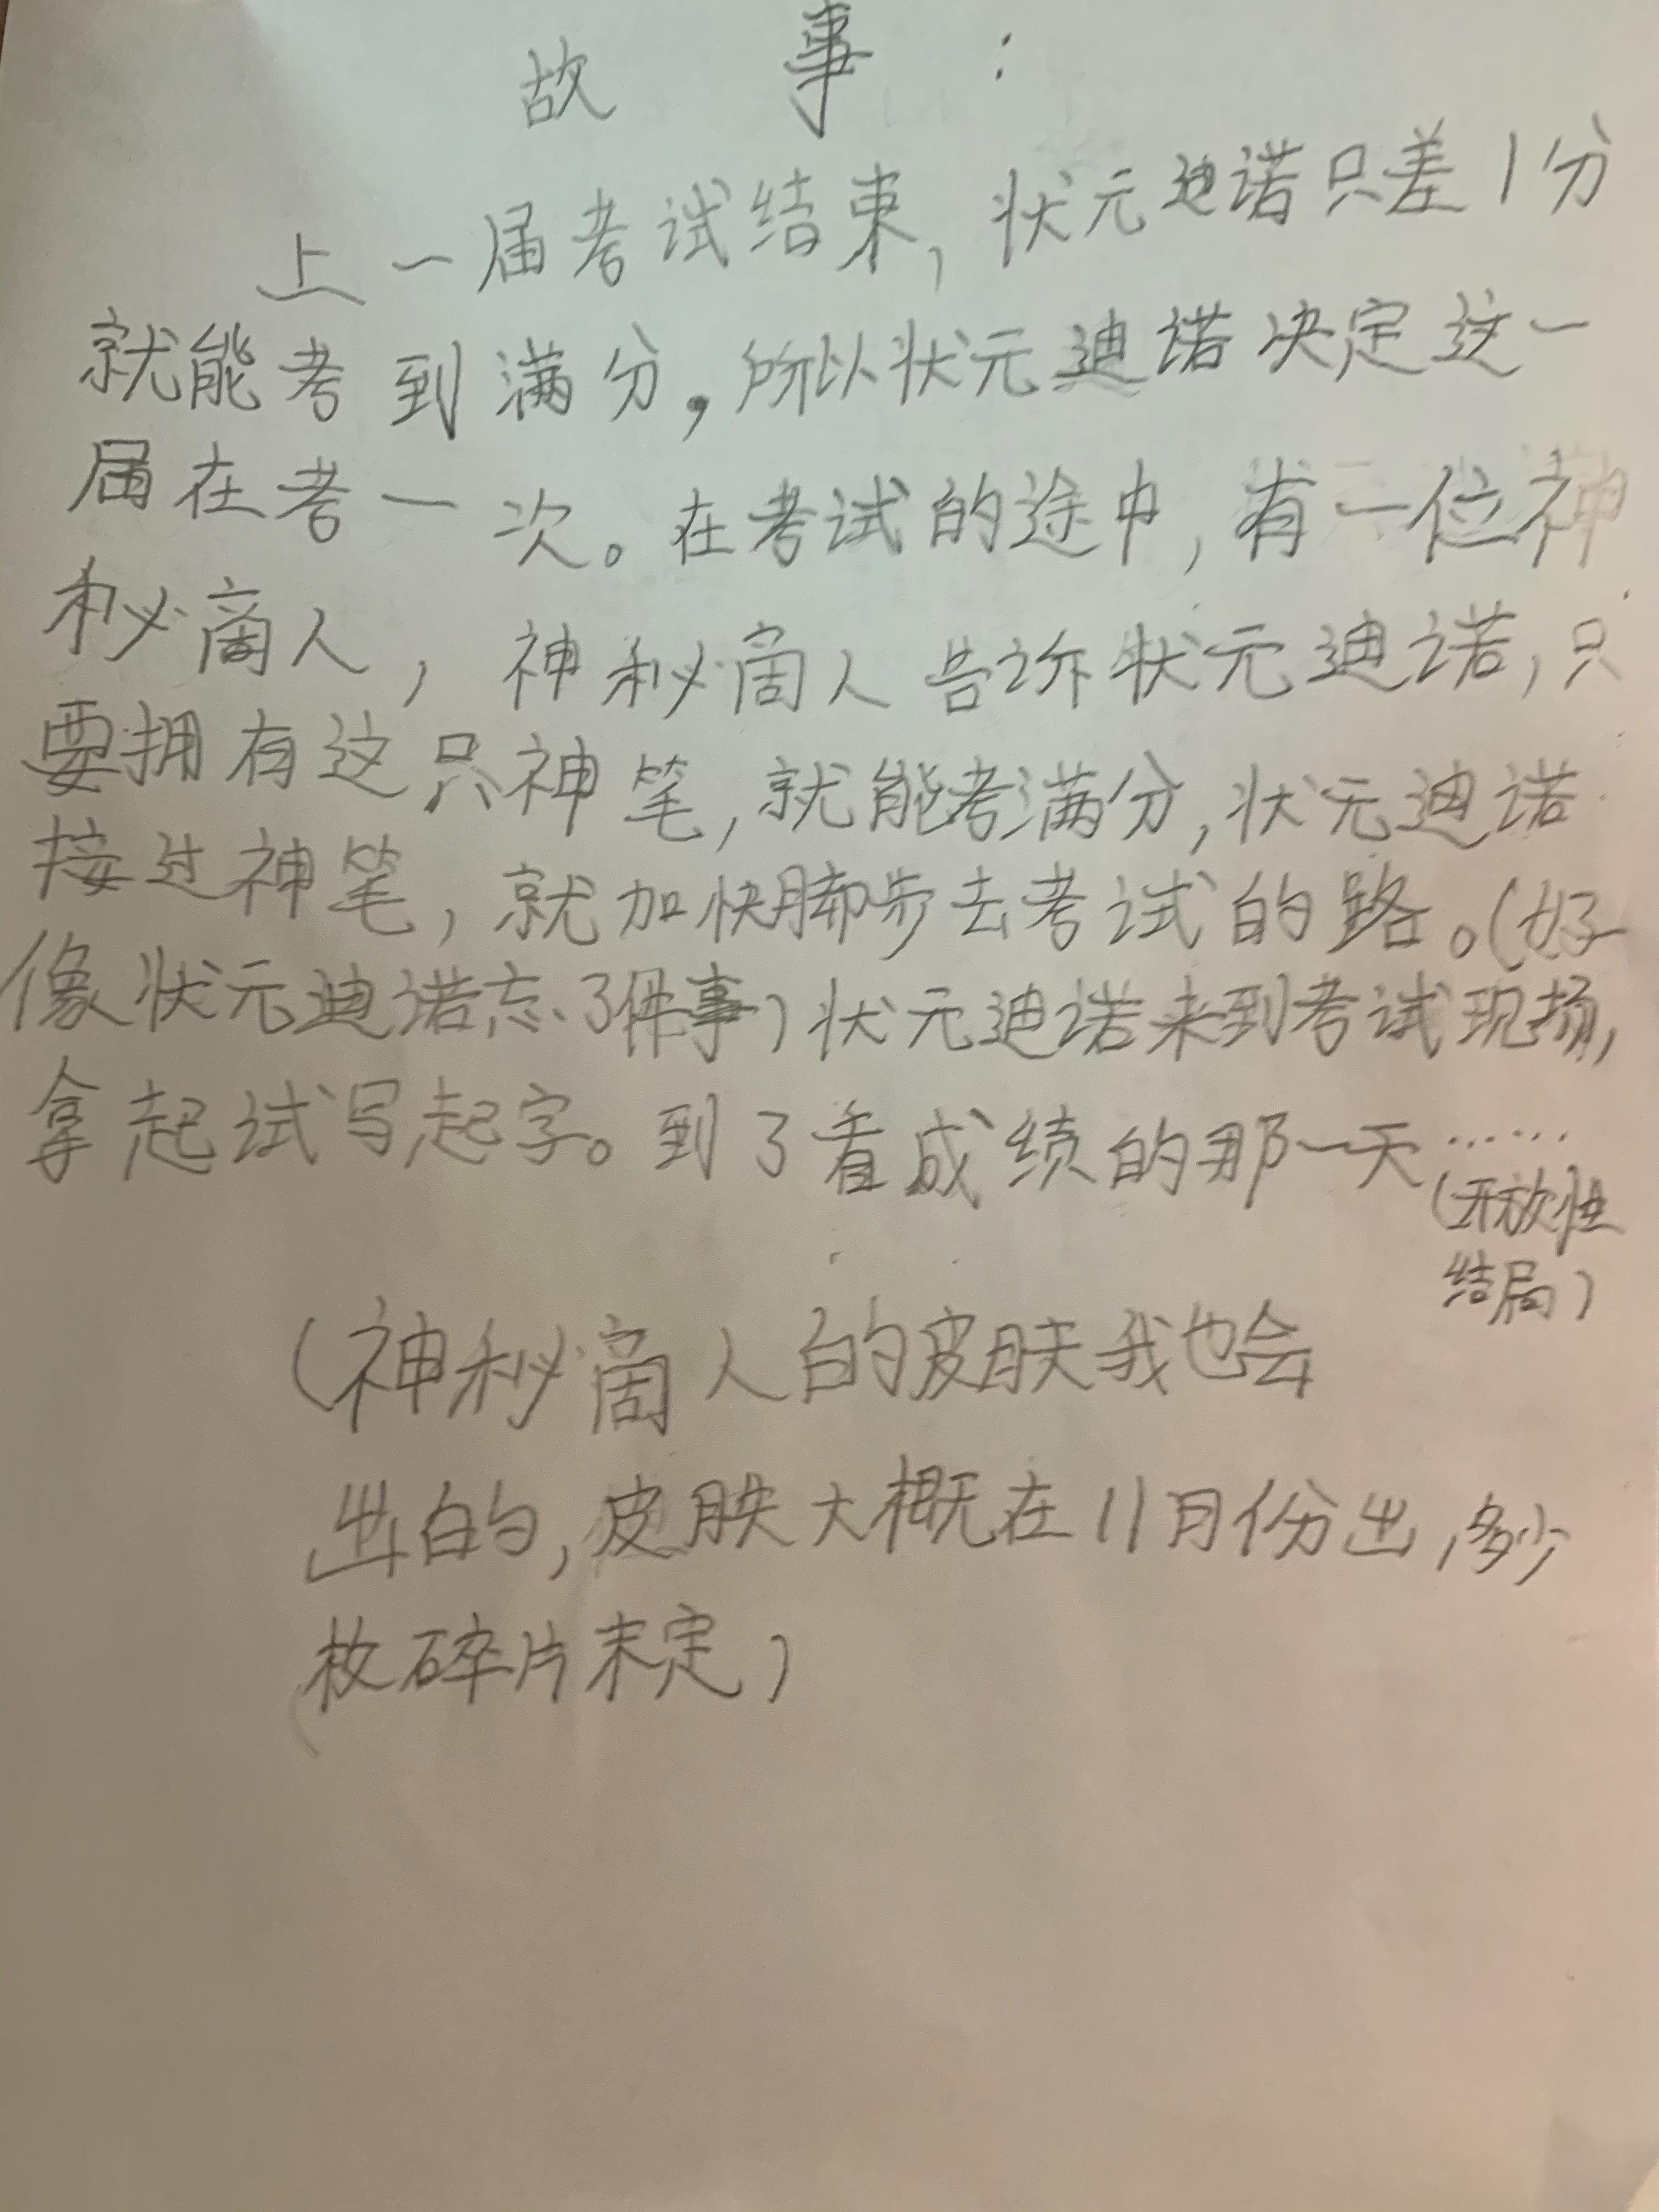 故 事：
上一届考试结束，状元迪诺只差1分
就能考到满分，所以状元迪诺决定这一
届在考一次。在考试的途中，有一位神
秘商人，神秘商人告诉状元迪诺，只
要拥有这只神笔，就能考满分，状元迪诺
接过神笔，就加快脚步去考试的路。（好
像状元迪诺忘了件事）状元迪诺来到考试现场，
拿起试写起字。到了看成绩的那一天……
（开放性
结局）
（神秘商人的皮肤我也会
出的，皮肤大概在11月份出，多少
枚碎片未定）